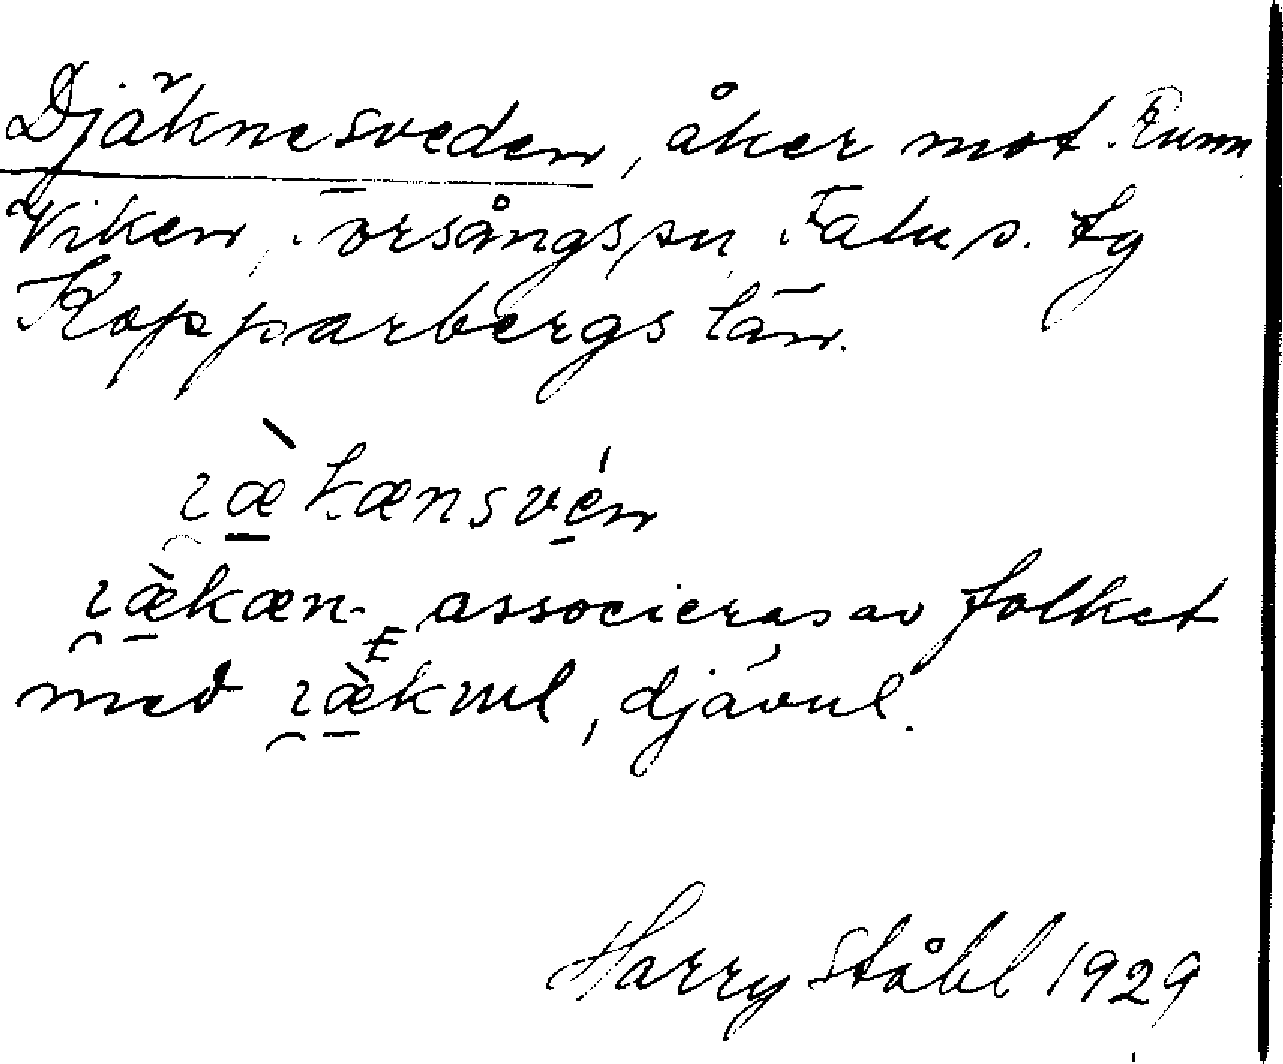 Djäknesveden, åker mot Runn
Viken, Torsångs sn, Falu s. fg
Kopparbergs län.
ɿæ̀kænsvén
ɿæ̀kæn- associeras av folket
med ɿæ̀kɯl, djävul.
Harry Ståhl 1929